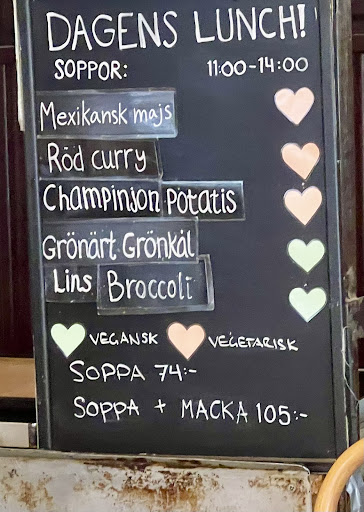 DAGENS LUNCH!
SOPPOR: 11:00-14:00
Mexikansk majs
Röd curry
Champinjon Potatis
Grönärt Grönkål
Lins Broccoli
VEGANSK VEGETARISK
SOPPA 74:-
SOPPA + MACKA 105:-